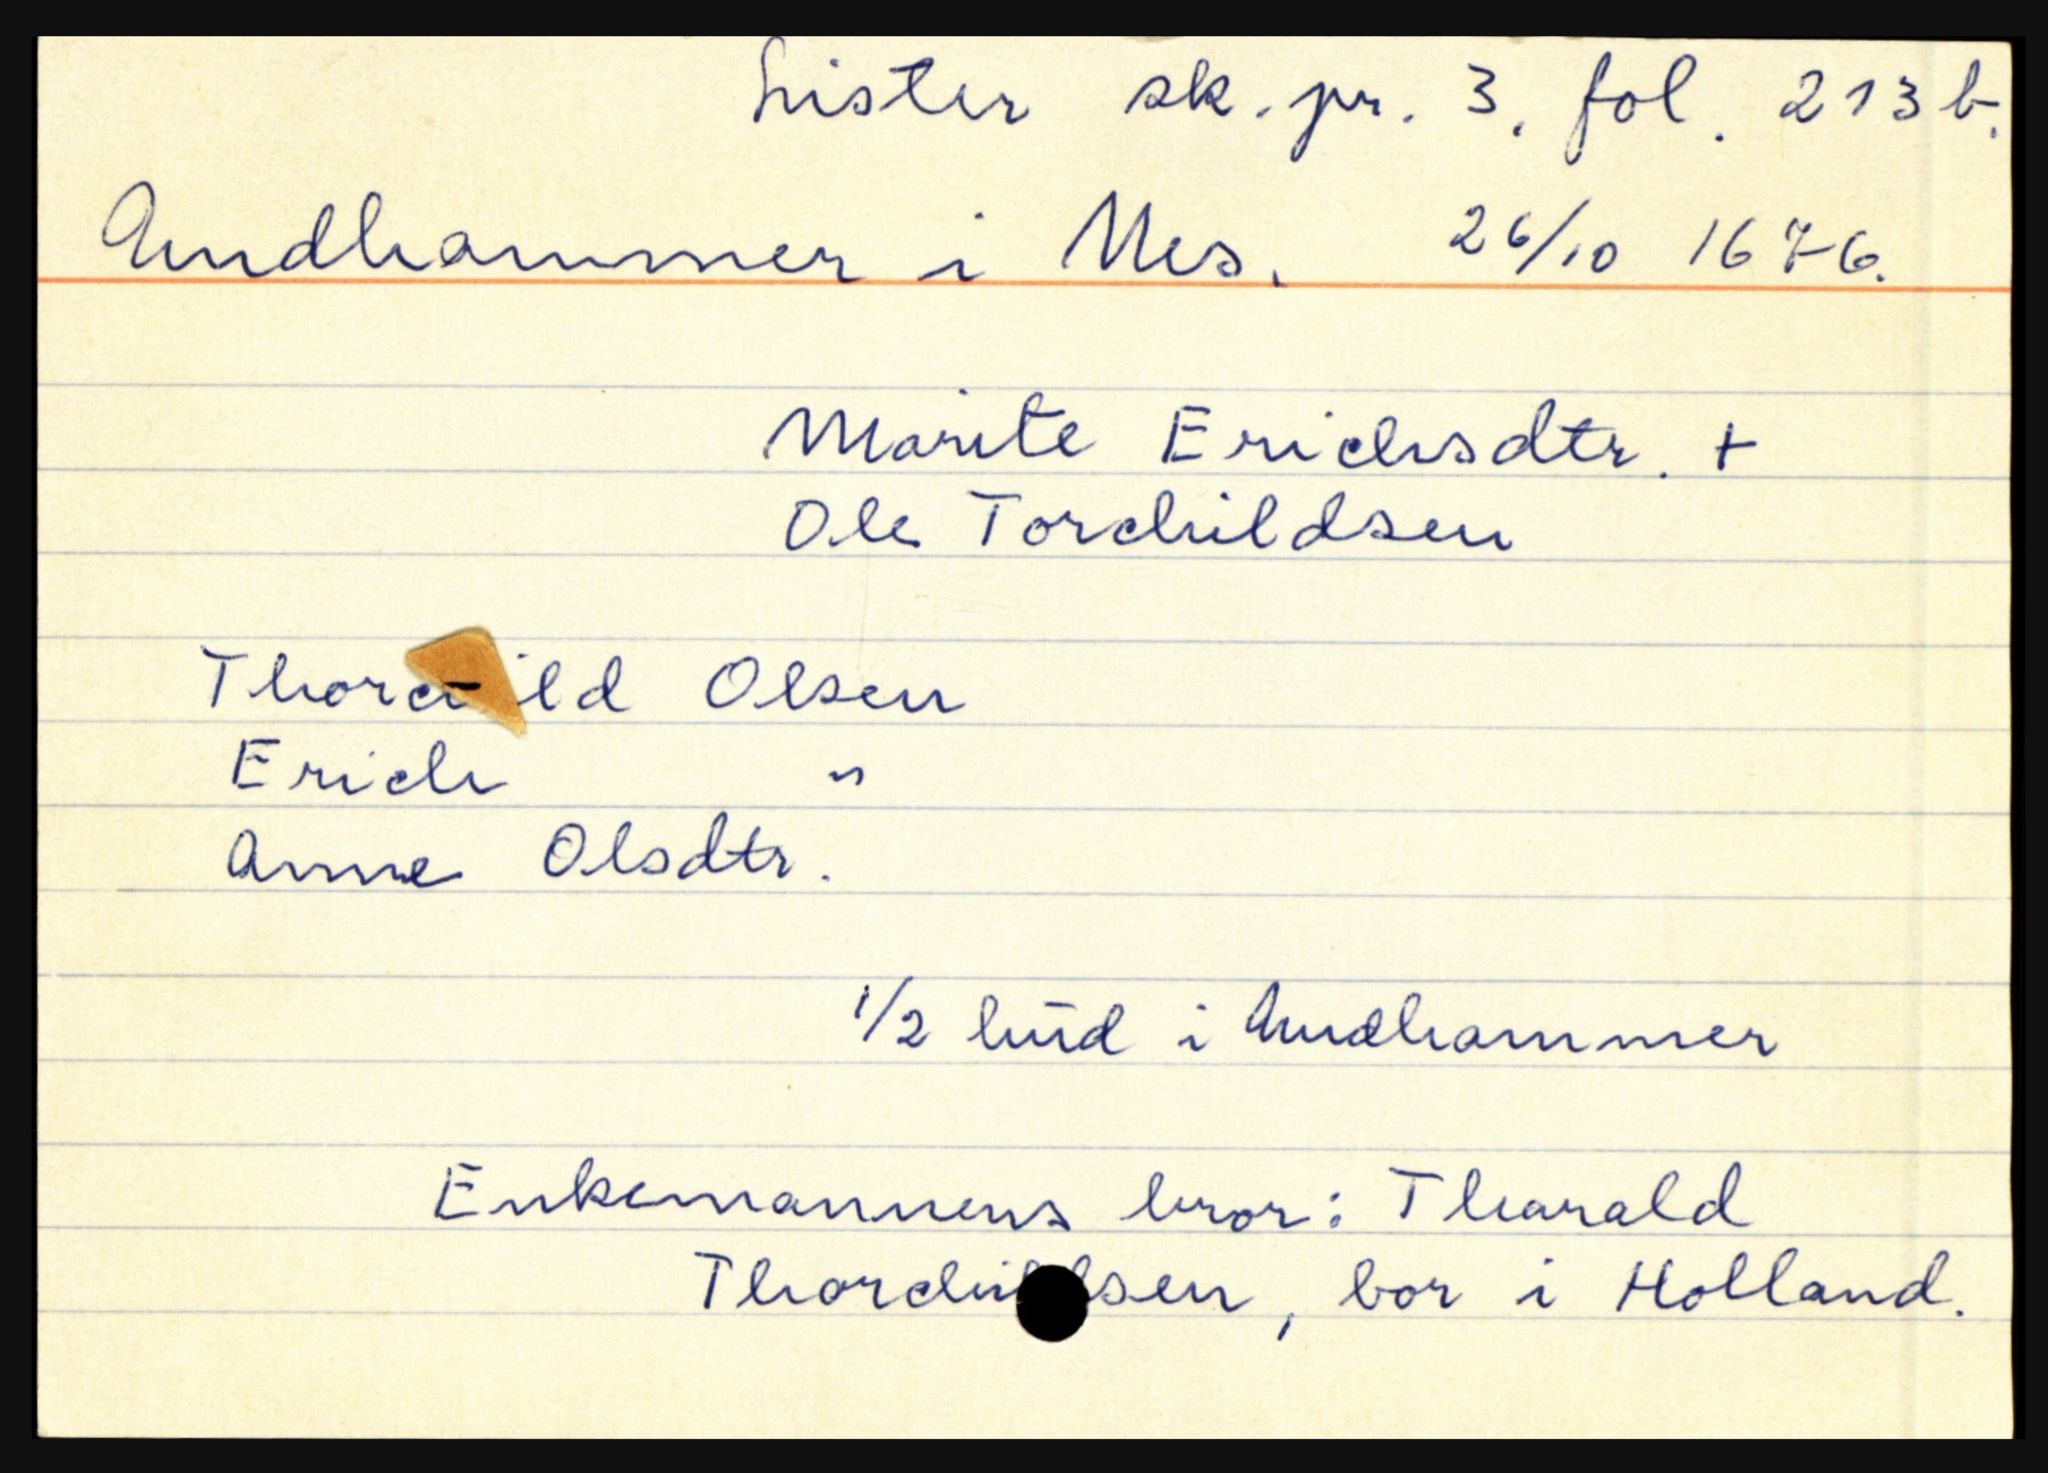 Lister sk. pr. 3. fol. 213 b.
Andhammer i Nes. 26/10 1676.
Marite Erichsdtr. +
Ole Torchildsen
Thorchild Olsen
Erich "
Anne Olsdtr.
1/2 hud i Andhammer
Enkemannens bror: Tharald
Thorchildsen, bor i Holland.